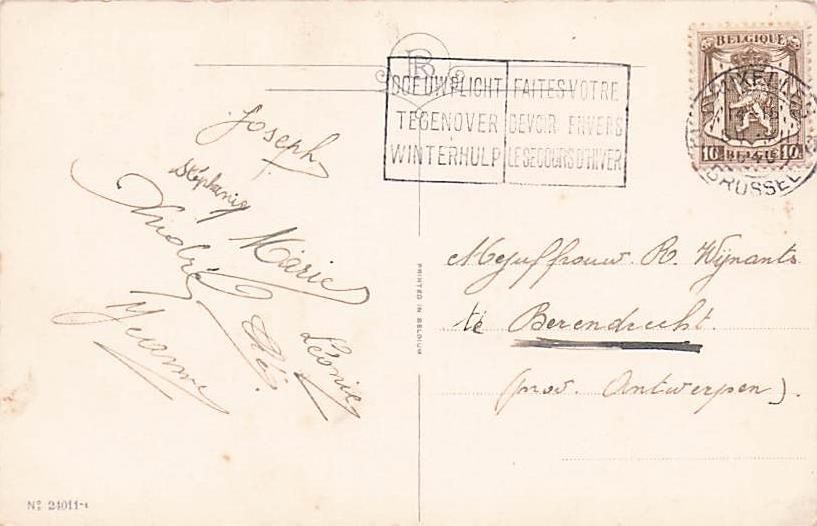 Joseph
Stéphanie
Marie
André
Jeanne
Cle
Léonie
PRINTED IN BELGIUM
No 24011-1
DOE UW PLICHT
TEGENOVER
WINTERHULP
FAITES VOTRE
DEVOIR ENVERS
LE SECOURS D'HIVER
BELGIQUE
10 BELGIE 10
BRUSSEL
Mejuffrouw. R. Wijnants
te Berendrecht.
(prov. Antwerpen).